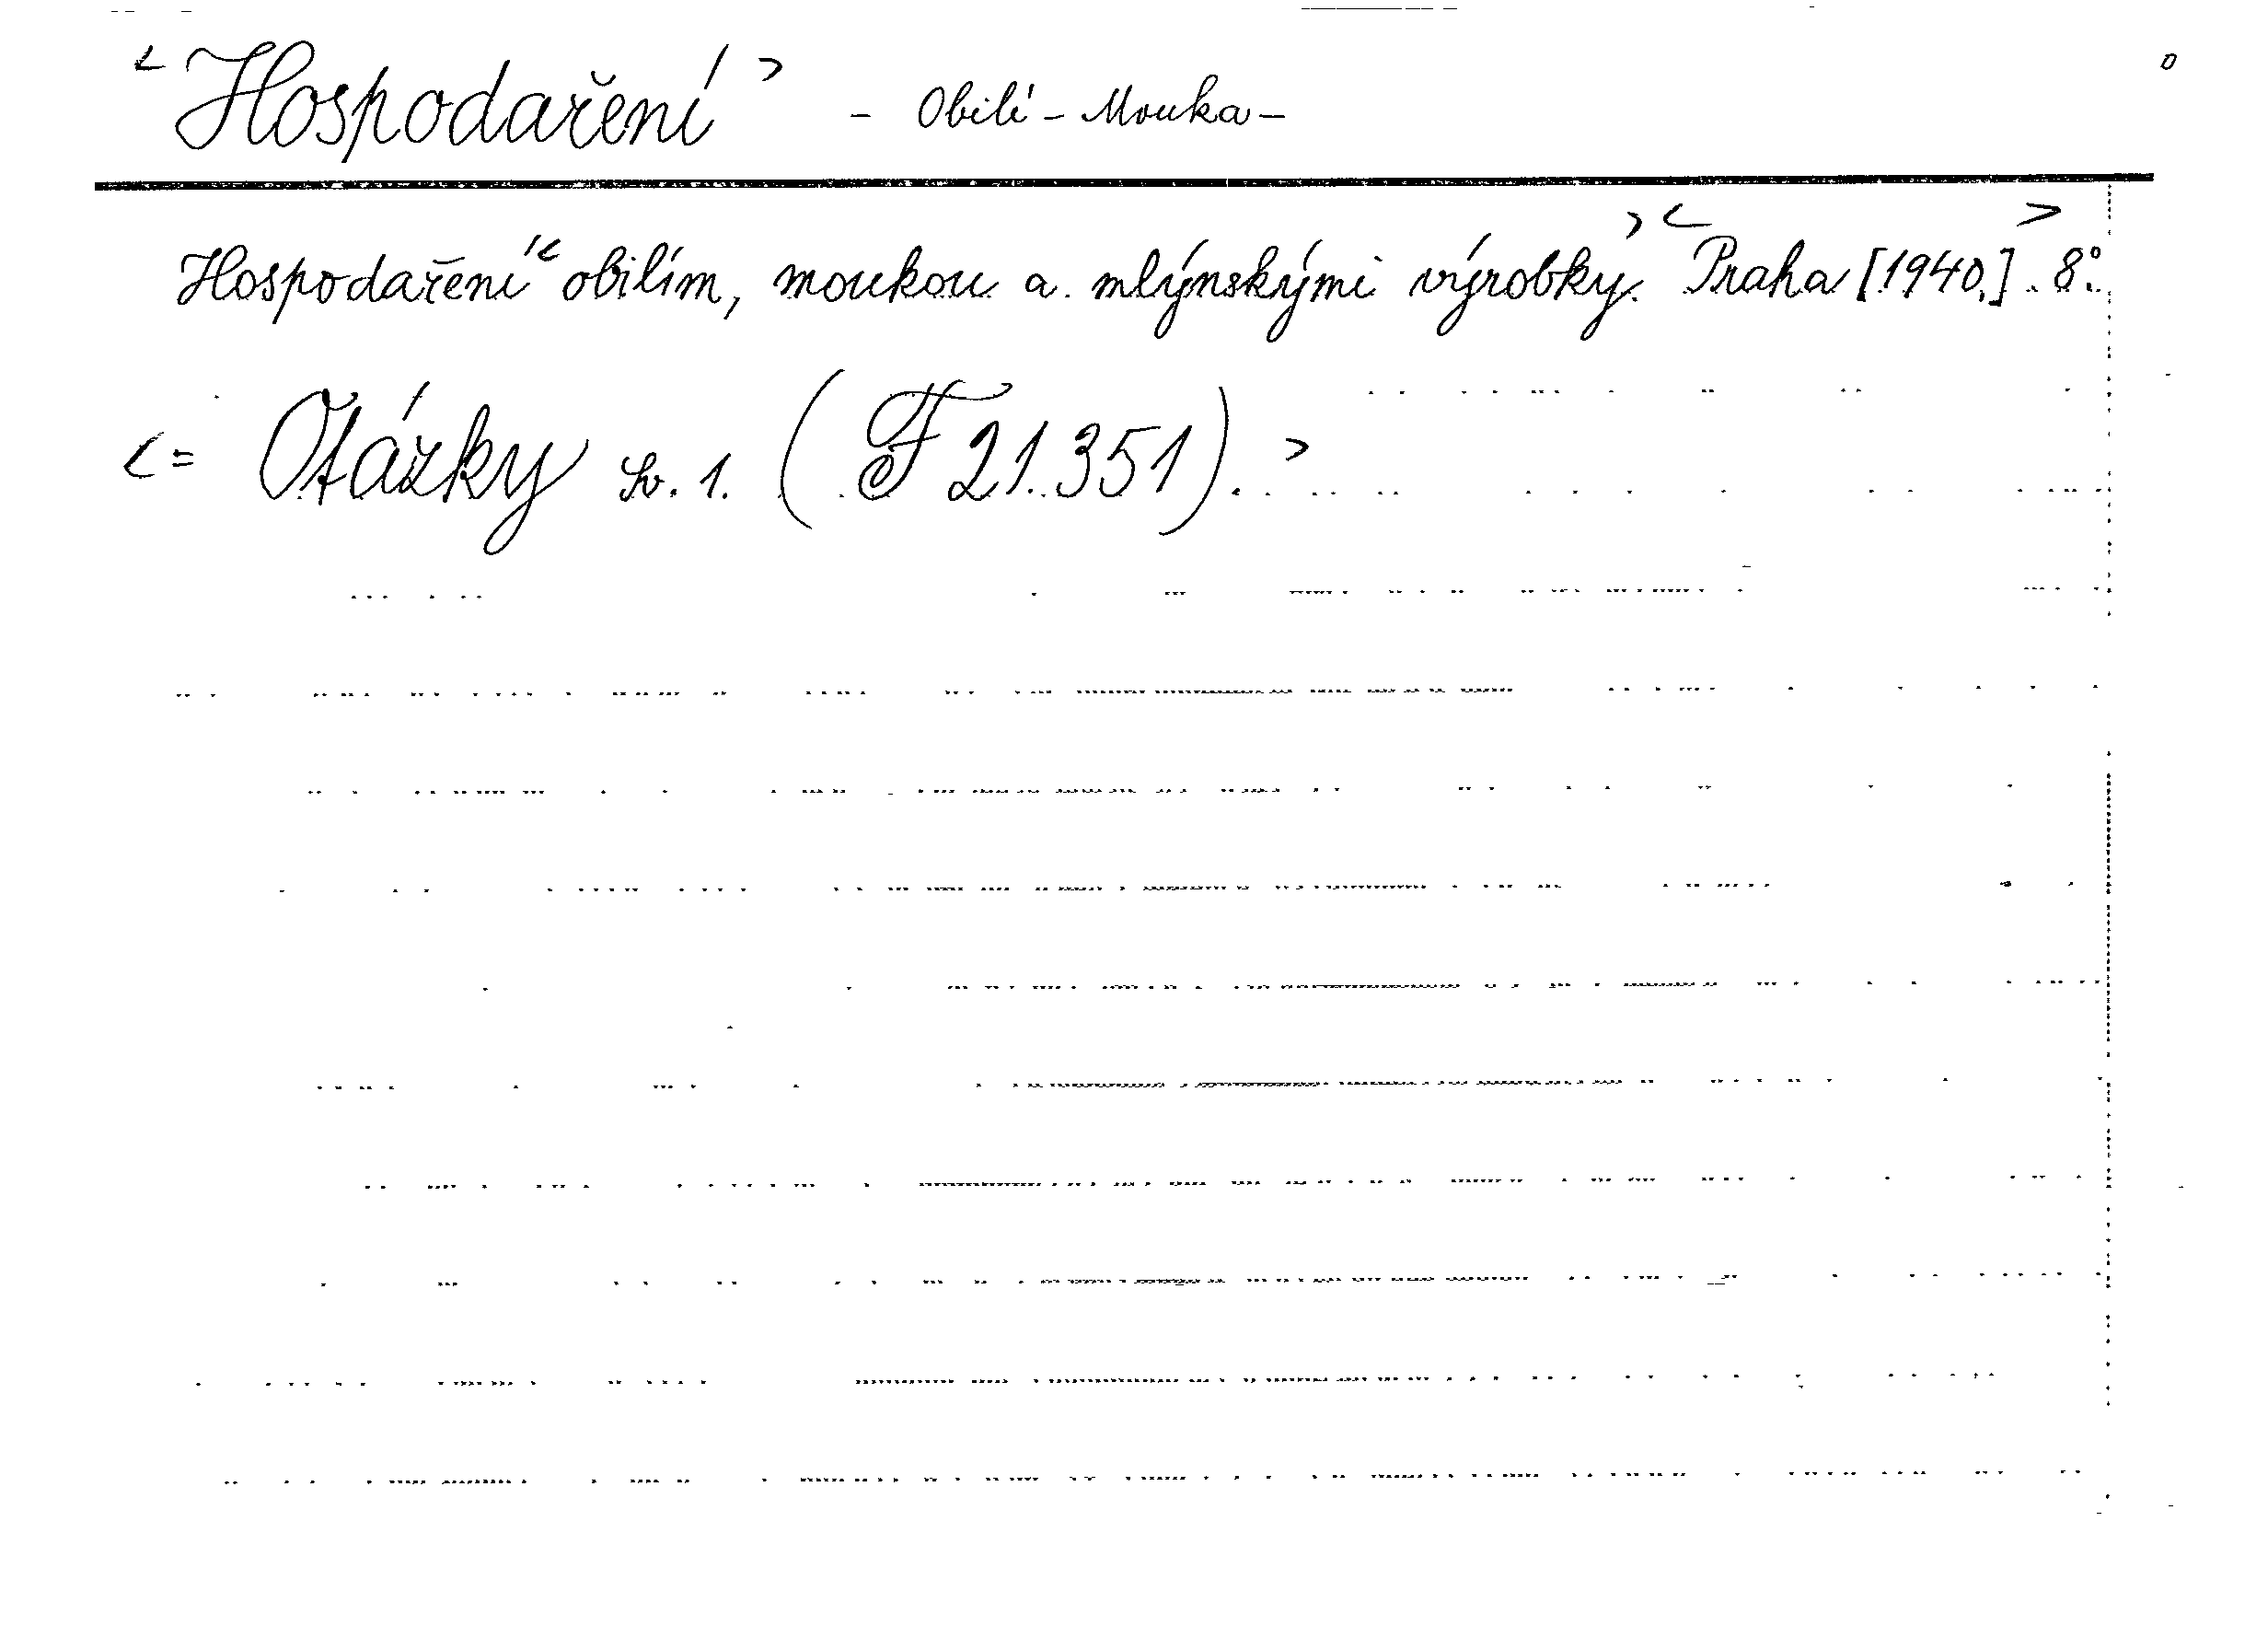 < Hospodaření > - Obilí - Mouka -
Hospodaření < obilím, moukou a mlýnskými výrobky. > < Praha [1940.] > 8°.
< = Otázky sv. 1. (F 21.351). >